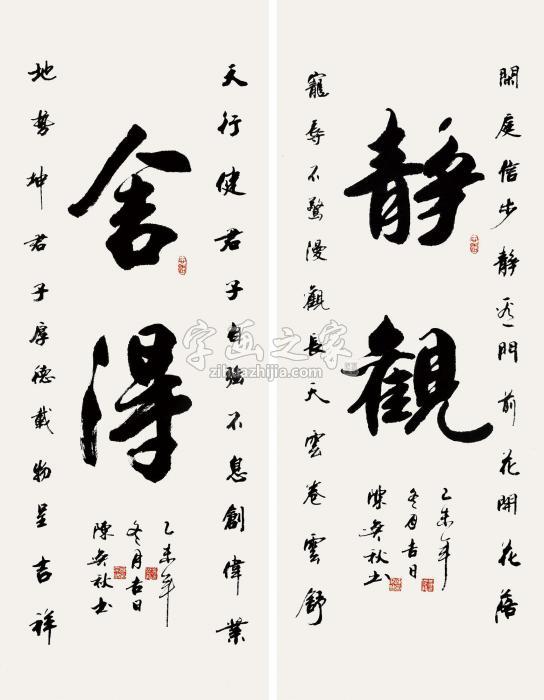 閑庭信步靜看門前花開花落
靜觀
寵辱不驚漫觀長天雲卷雲舒
乙未年
冬月吉日
陳英秋书
天行健君子自強不息創偉業
舍得
地势坤君子厚德載物呈吉祥
乙未年
冬月吉日
陳英秋书
字画之家
zihuazhijia.com